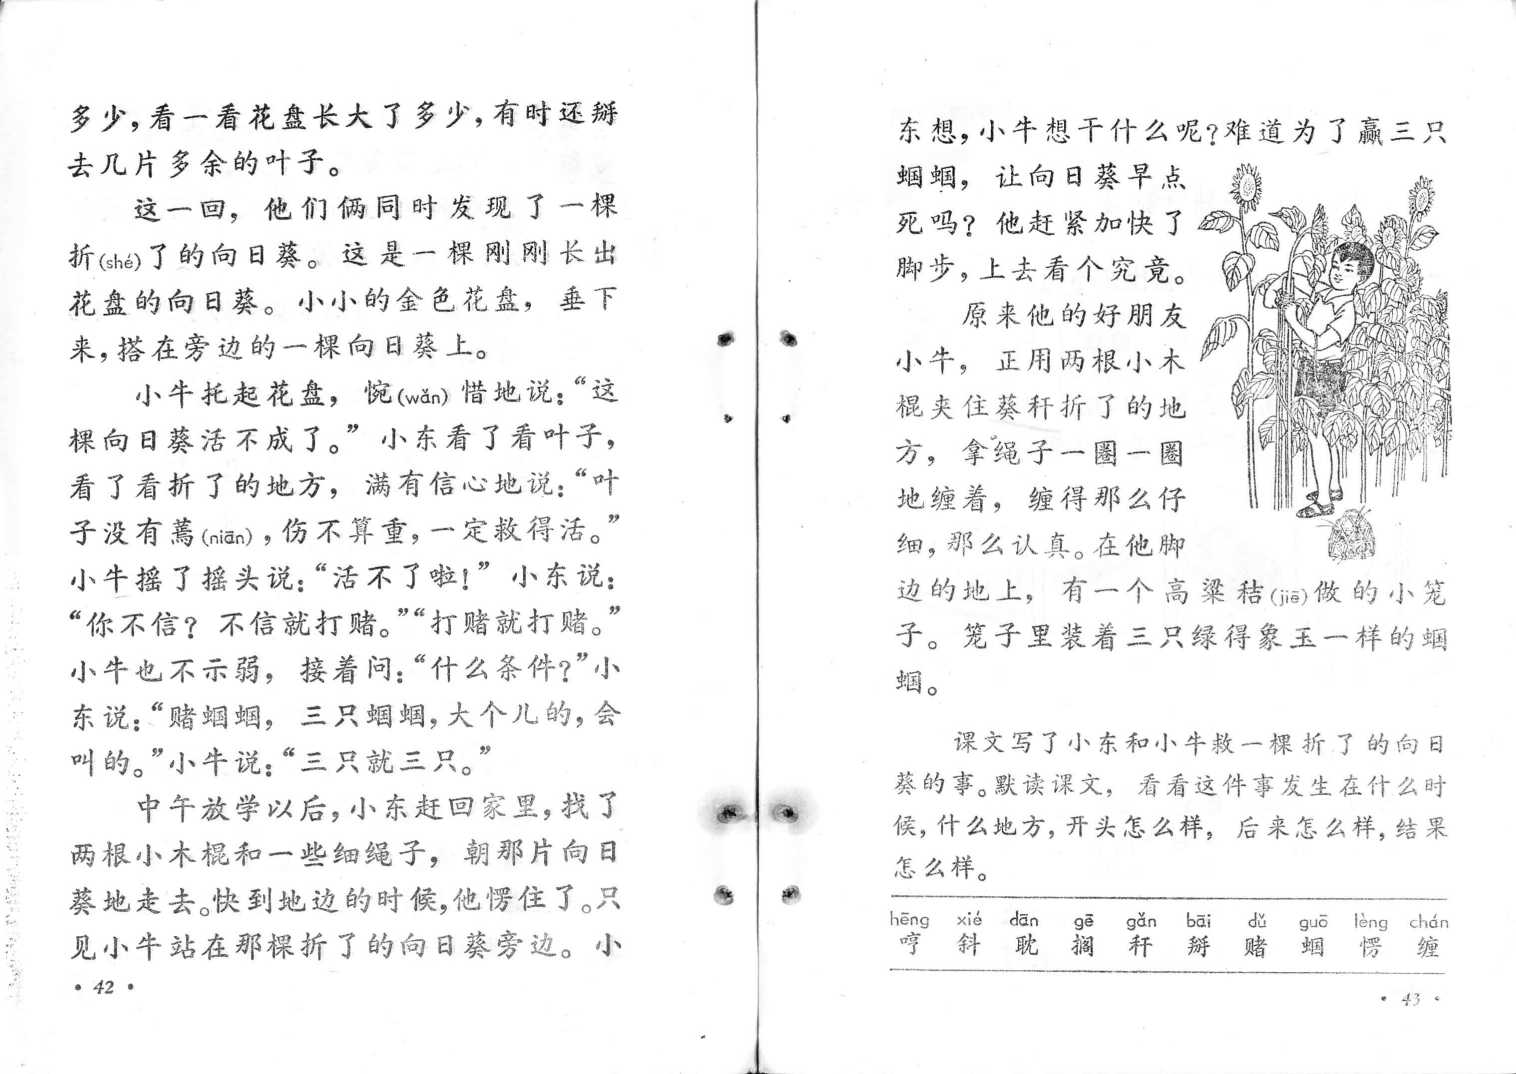 多少，看一看花盘长大了多少，有时还掰
去几片多余的叶子。
这一回，他们俩同时发现了一棵
折(shé)了的向日葵。这是一棵刚刚长出
花盘的向日葵。小小的金色花盘，垂下
来，搭在旁边的一棵向日葵上。
小牛托起花盘，惋(wǎn)惜地说：“这
棵向日葵活不成了。”小东看了看叶子，
看了看折了的地方，满有信心地说：“叶
子没有蔫(niān)，伤不算重，一定救得活。”
小牛摇了摇头说：“活不了啦！”小东说：
“你不信？不信就打赌。”“打赌就打赌。”
小牛也不示弱，接着问：“什么条件？”小
东说：“赌蝈蝈，三只蝈蝈，大个儿的，会
叫的。”小牛说：“三只就三只。”
中午放学以后，小东赶回家里，找了
两根小木棍和一些细绳子，朝那片向日
葵地走去。快到地边的时候，他愣住了。只
见小牛站在那棵折了的向日葵旁边。小
• 42 •
东想，小牛想干什么呢？难道为了赢三只
蝈蝈，让向日葵早点
死吗？他赶紧加快了
脚步，上去看个究竟。
原来他的好朋友
小牛，正用两根小木
棍夹住葵秆折了的地
方，拿绳子一圈一圈
地缠着，缠得那么仔
细，那么认真。在他脚
边的地上，有一个高粱秸(jiē)做的小笼
子。笼子里装着三只绿得象玉一样的蝈
蝈。
课文写了小东和小牛救一棵折了的向日
葵的事。默读课文，看看这件事发生在什么时
候，什么地方，开头怎么样，后来怎么样，结果
怎么样。
hēng xié dān gē gǎn bāi dǔ guō lèng chán
哼 斜 耽 搁 秆 掰 赌 蝈 愣 缠
• 43 •